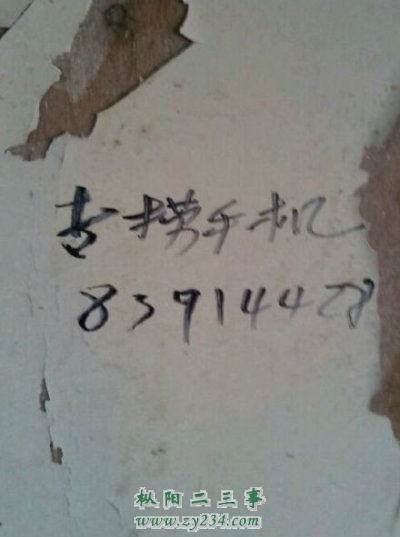 专捞手机
83914428
枞阳二三事
www.zy234.com